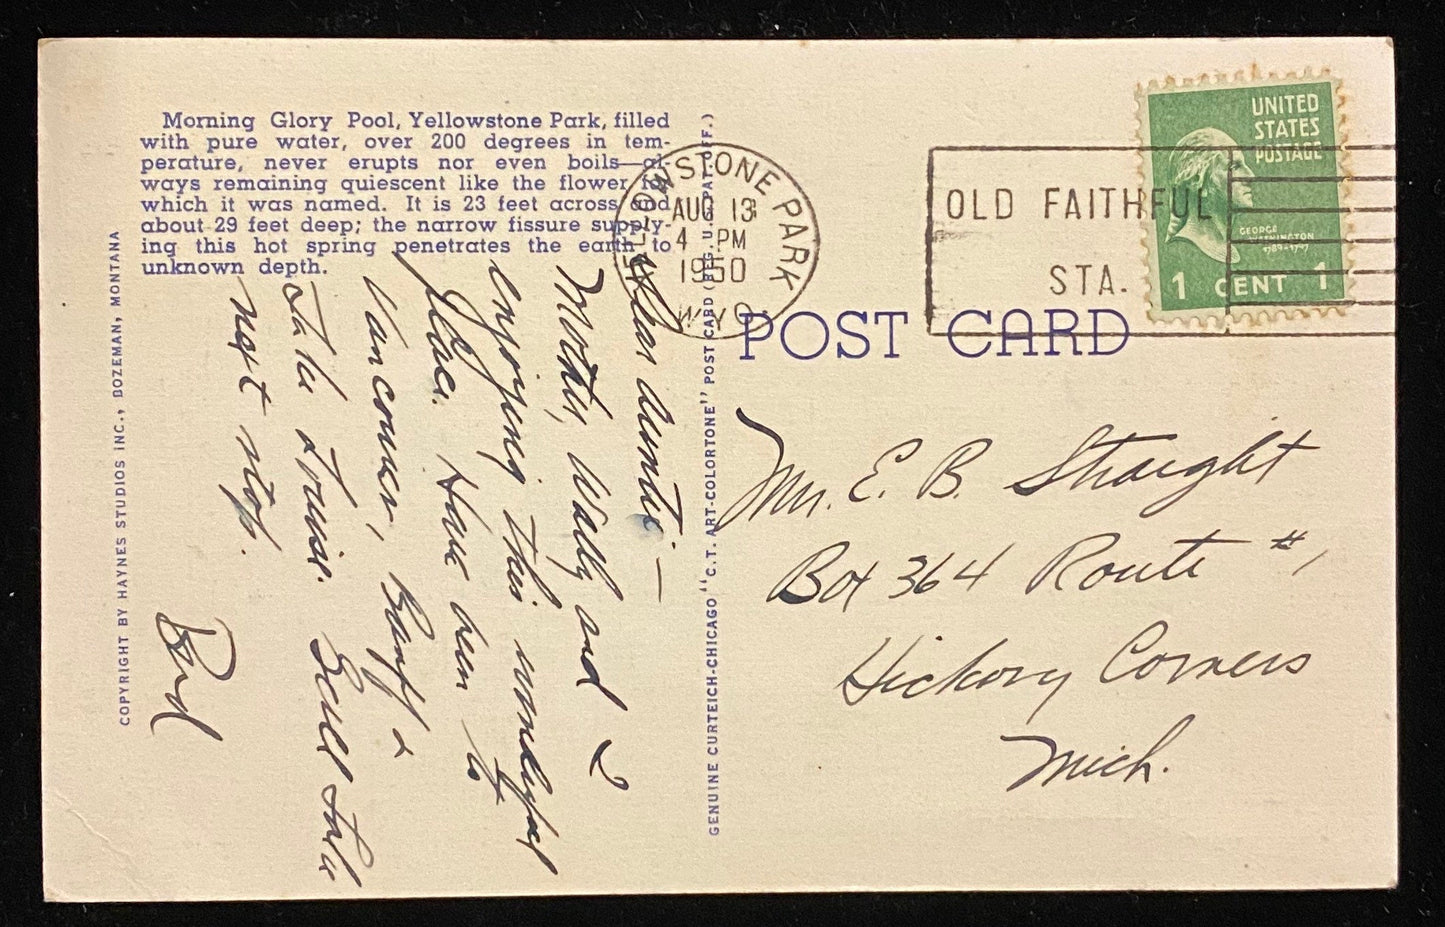 Morning Glory Pool, Yellowstone Park, filled
with pure water, over 200 degrees in tem-
perature, never erupts nor even boils—al-
ways remaining quiescent like the flower for
which it was named. It is 23 feet across and
about 29 feet deep; the narrow fissure supply-
ing this hot spring penetrates the earth to
unknown depth.
COPYRIGHT BY HAYNES STUDIOS INC., BOZEMAN, MONTANA
Dear Auntie —
Mother, Wally and I
enjoying this wonderful
place. Have been to
Vancouver, Banff &
Lake Louise. Salt Lake
next stop.
Bud
GENUINE CURTEICH-CHICAGO "C.T. ART-COLORTONE" POST CARD (REG. U.S. PAT. OFF.)
YELLOWSTONE PARK
AUG 13
4 PM
1950
WYO
OLD FAITHFUL
STA.
UNITED
STATES
POSTAGE
GEORGE
WASHINGTON
1789-1797
1 CENT 1
POST CARD
Mr. E. B. Straight
Box 364 Route #1
Hickory Corners
Mich.